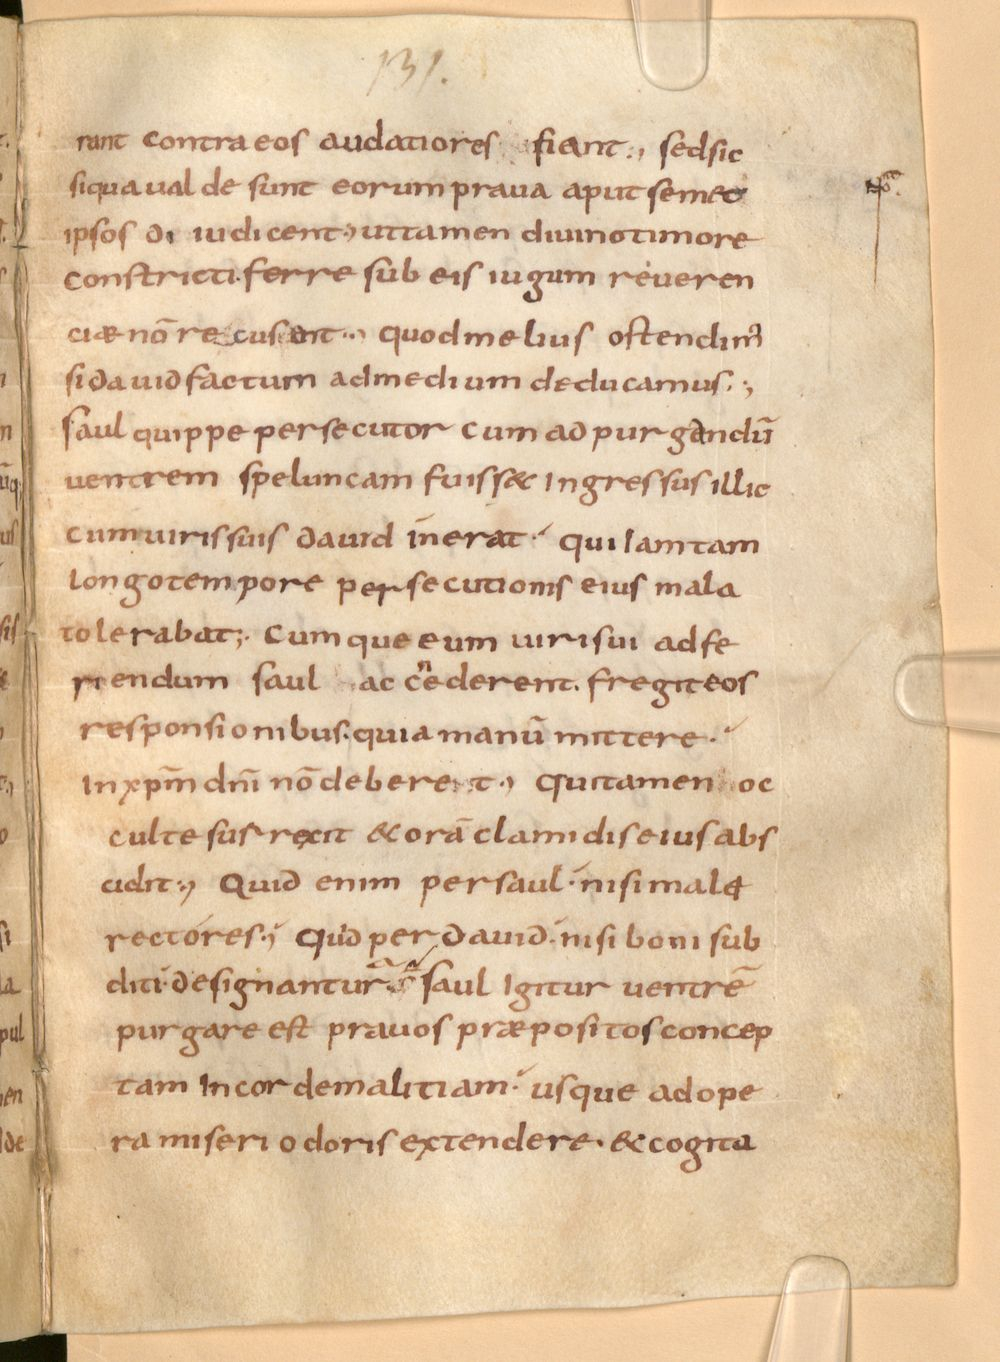 131.
rant contra eos audatiores fiant., sed sic
siqua ualde sunt eorum praua aput semet
ipsos di iudicent, ut tamen diuino timore
constricti. ferre sub eis iugum reueren
ciæ nō recusent., quod melius ostendim᾽
si dauid factum ad medium deducamus.,
saul quippe persecutor cum ad purgandū
uentrem speluncam fuiss& Ingressus illic
cum uiris suis dauid inerat. Qui Iam tam
longo tempore persecutionis eius mala
tolerabat;. Cumque eum uiri sui ad fe
riendum saul accenderent. fregit eos
responsionibus. quia manū mittere.
In xpm̄ dnī nō deberent., Qui tamen oc
culte surrexit & orā clamidis eius abs
cidit., Quid enim per saul. nisi malę
rectores., Quid per dauid. nisi boni sub
diti. designantur saul Igitur uentrē
purgare est prauos præpositos concep
tam In corde malitiam. usque ad ope
ra miseri odoris extendere. & cogita